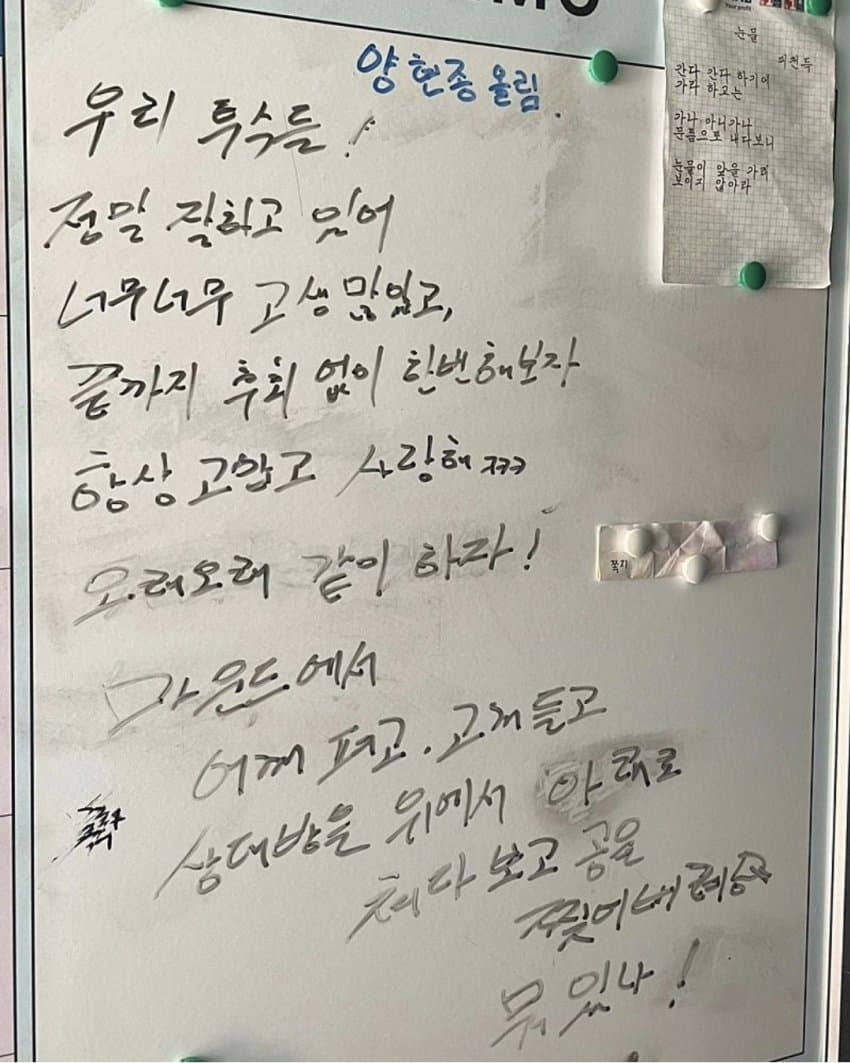 양현종 올림.
우리 투수들!
정말 잘하고 있어
너무너무 고생많았고,
끝까지 후회 없이 한번해보자
항상 고맙고 사랑해 ㅋㅋㅋ
오래오래 같이 하자!
마운드에서
어깨 펴고. 고개들고
상대방을 위에서 아래로
쳐다 보고 공을
뭐 있나!
눈물
피천득
간다 간다 하기에
가라 하고는
가나 아니가나
문틈으로 내다보니
눈물이 앞을 가려
보이지 않아라
쪽지